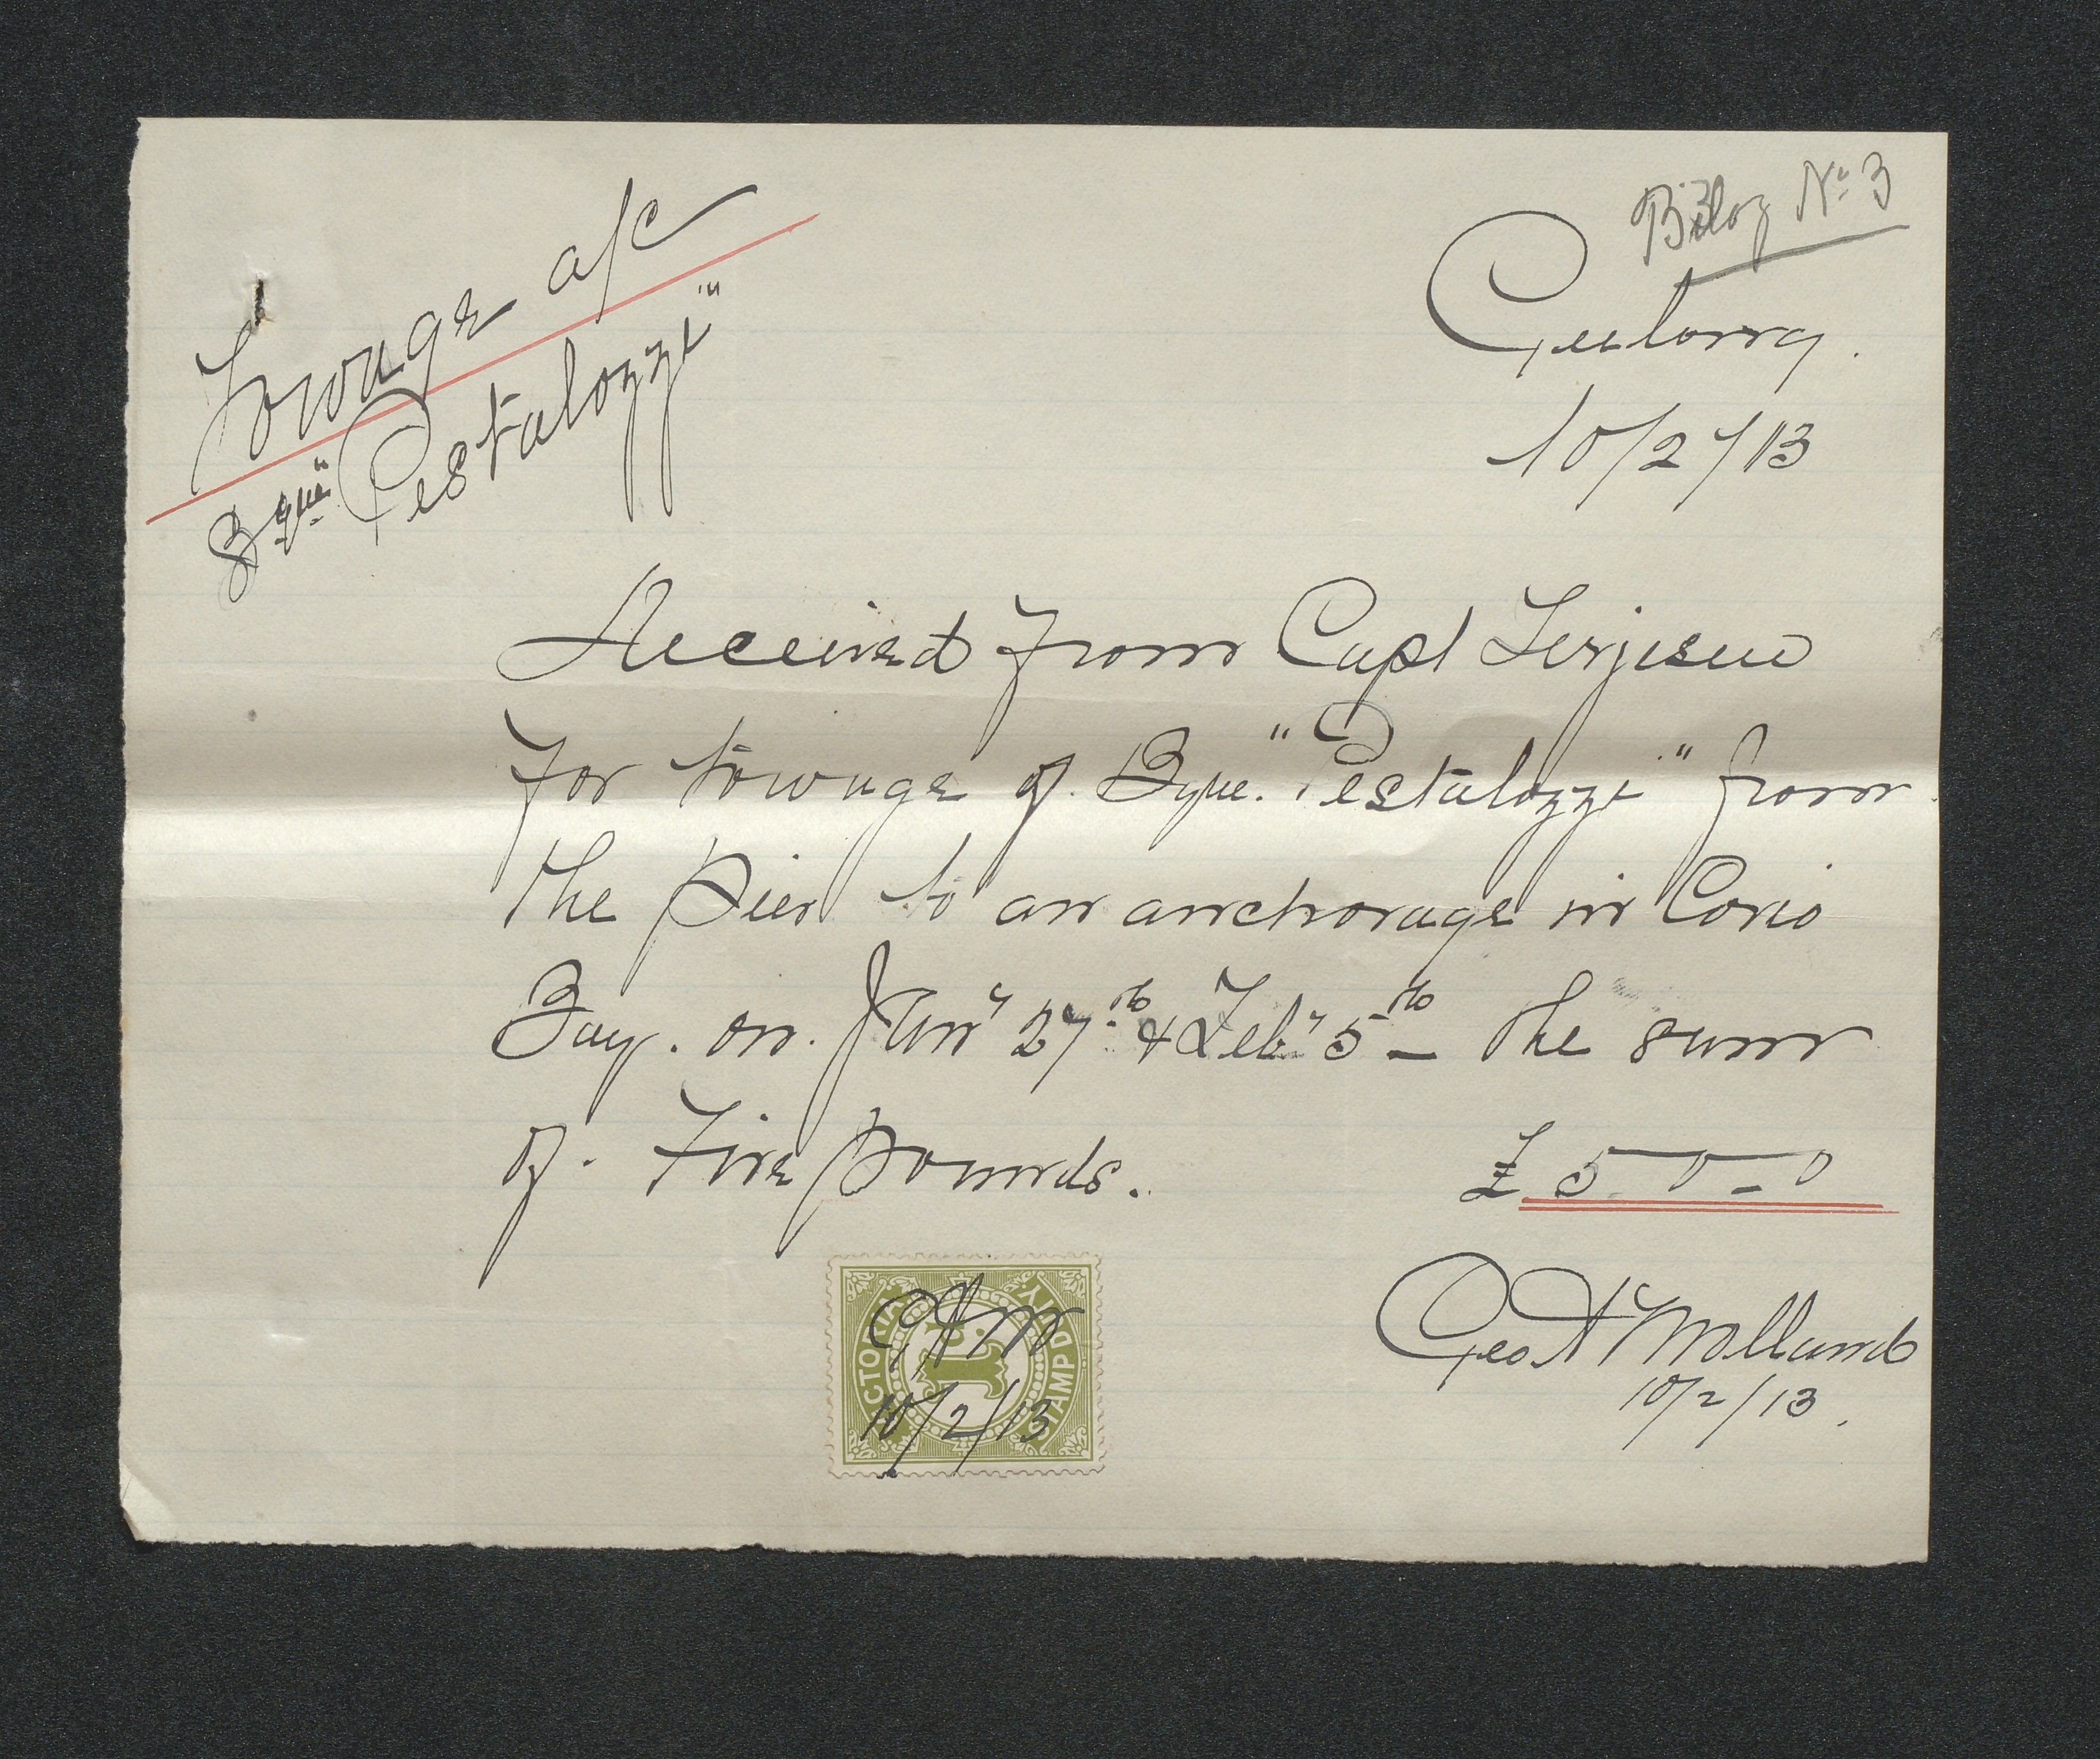 Towage a/c
Bque "Pestalozzi"
Bilag No 3
Geelong.
10/2/13
Received from Capt Terjesen
for towage of Bque. "Pestalozzi" from
the Pier to an anchorage in Corio
Bay. on. Jany 27th & Feby 5th the sum
of. Five pounds.
£ 5-0-0
VICTORIA
1D.
STAMP DUTY.
GAM
10/2/13
Geo A Molland
10/2/13.